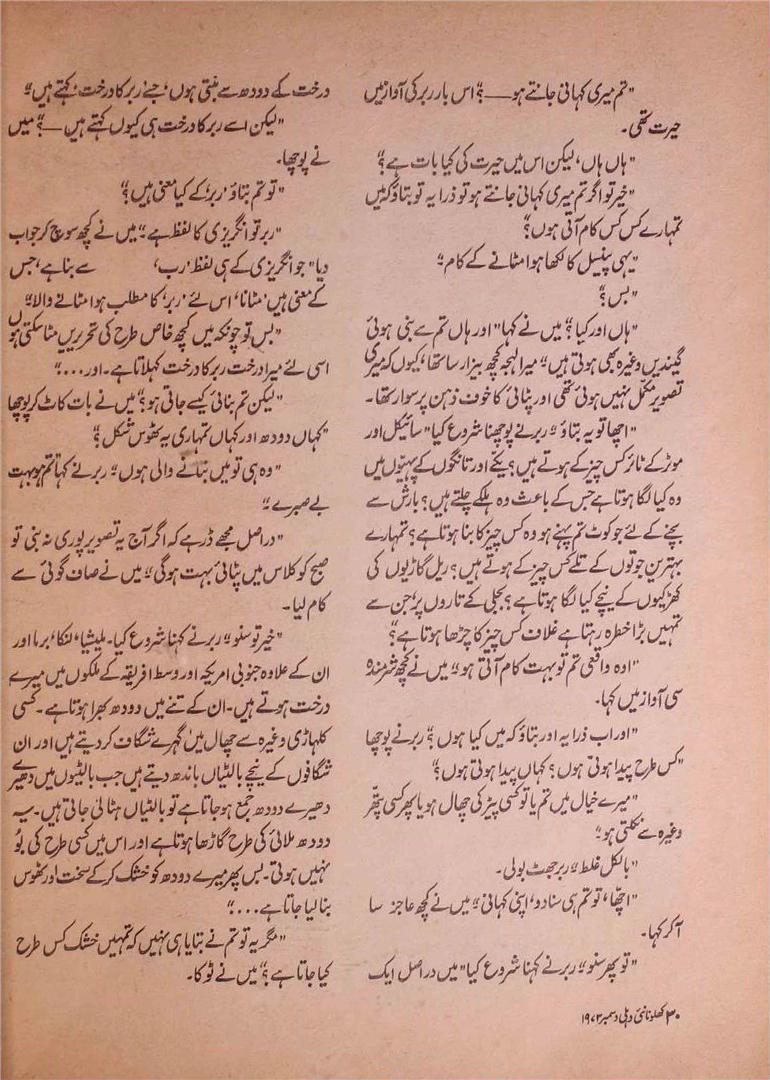 "تم میری کہانی جانتے ہو —؟" اس بار ربر کی آواز میں
حیرت تھی۔
"ہاں ہاں، لیکن اس میں حیرت کی کیا بات ہے؟"
"خیر تو اگر تم میری کہانی جانتے ہو تو ذرا یہ تو بتاؤ کہ میں
تمہارے کس کس کام آتی ہوں؟"
"یہی پنسل کا لکھا ہوا مٹانے کے کام۔"
"بس؟"
"ہاں اور کیا؟" میں نے کہا" اور ہاں تم سے بنی ہوئی
گیندیں وغیرہ بھی ہوتی ہیں" میرا لہجہ کچھ بیزار سا تھا، کیوں کہ میری
تصویر مکمّل نہیں ہوئی تھی اور پٹائی کا خوف ذہن پر سوار تھا۔
"اچھا تو یہ بتاؤ" ربر نے پوچھنا شروع کیا" سائیکل اور
موٹر کے ٹائر کس چیز کے ہوتے ہیں؟ یکّے اور تانگوں کے پہیّوں میں
وہ کیا لگا ہوتا ہے جس کے باعث وہ ہلکے چلتے ہیں؟ بارش سے
بچنے کے لئے جو کوٹ تم پہنے ہو وہ کس چیز کا بنا ہوتا ہے؟ تمہارے
بہترین جوتوں کے تلے کس چیز کے ہوتے ہیں؟ ریل گاڑیوں کی
کھڑکیوں کے نیچے کیا لگا ہوتا ہے؟ بجلی کے تاروں پر، جن سے
تمہیں بڑا خطرہ رہتا ہے غلاف کس چیز کا چڑھا ہوتا ہے؟"
"اوہ واقعی تم تو بہت کام آتی ہو" میں نے کچھ شرمندہ
سی آواز میں کہا۔
"اور اب ذرا یہ اور بتاؤ کہ میں کیا ہوں؟" ربر نے پوچھا
"کس طرح پیدا ہوتی ہوں؟ کہاں پیدا ہوتی ہوں؟"
"میرے خیال میں تم یا تو کسی پیڑ کی چھال ہو یا پھر کسی پتّھر
وغیرہ سے نکلتی ہو۔"
"بالکل غلط" ربر جھٹ بولی۔
"اچّھا، تو تم ہی سنا دو، اپنی کہانی" میں نے کچھ عاجز سا
آ کر کہا۔
"تو پھر سنو" ربر نے کہنا شروع کیا" میں دراصل ایک
درخت کے دودھ سے بنتی ہوں، جسے 'ربر کا درخت' کہتے ہیں"
"لیکن اسے ربر کا درخت ہی کیوں کہتے ہیں —؟" میں
نے پوچھا۔
"تو تم بتاؤ 'ربر' کے کیا معنی ہیں؟"
"ربر تو انگریزی کا لفظ ہے" میں نے کچھ سوچ کر جواب
دیا" جو انگریزی کے ہی لفظ 'رب' سے بنا ہے، جس
کے معنی ہیں 'مٹانا' اس لئے 'ربر' کا مطلب ہوا مٹانے والا"
"بس تو چونکہ میں کچھ خاص طرح کی تحریریں مٹا سکتی ہوں
اسی لئے میرا درخت ربر کا درخت کہلاتا ہے۔ اور...."
"لیکن تم بنائی کیسے جاتی ہو؟" میں نے بات کاٹ کر پوچھا
"کہاں دودھ اور کہاں تمہاری یہ ٹھوس شکل؟"
"وہ ہی تو میں بتانے والی ہوں" ربر نے کہا "تم ہو بہت
بے صبرے۔"
"دراصل مجھے ڈر ہے کہ اگر آج یہ تصویر پوری نہ بنی تو
صبح کو کلاس میں پٹائی بہت ہوگی" میں نے صاف گوئی سے
کام لیا۔
"خیر تو سنو" ربر نے کہنا شروع کیا۔ ملیشیا، لنکا، برما اور
ان کے علاوہ جنوبی امریکہ اور وسط افریقہ کے ملکوں میں میرے
درخت ہوتے ہیں۔ ان کے تنے میں دودھ بھرا ہوتا ہے۔ کسی
کلہاڑی وغیرہ سے چھال میں گہرے شگاف کر دیتے ہیں اور ان
شگافوں کے نیچے بالٹیاں باندھ دیتے ہیں جب بالٹیوں میں دھیرے
دھیرے دودھ جمع ہو جاتا ہے تو بالٹیاں ہٹالی جاتی ہیں۔ یہ
دودھ ملائی کی طرح گاڑھا ہوتا ہے اور اس میں کسی طرح کی بُو
نہیں ہوتی۔ بس پھر میرے دودھ کو خشک کر کے سخت اور ٹھوس
بنا لیا جاتا ہے...."
"مگر یہ تو تم نے بتایا ہی نہیں کہ تمہیں خشک کس طرح
کیا جاتا ہے؟" میں نے ٹوکا۔
۳۰ کھلونا نئی دہلی دسمبر ۱۹۷۳